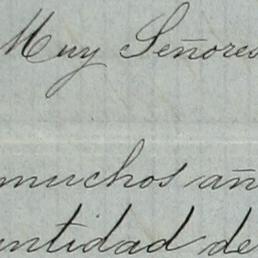 Muy Señores
muchos añ
antidad de